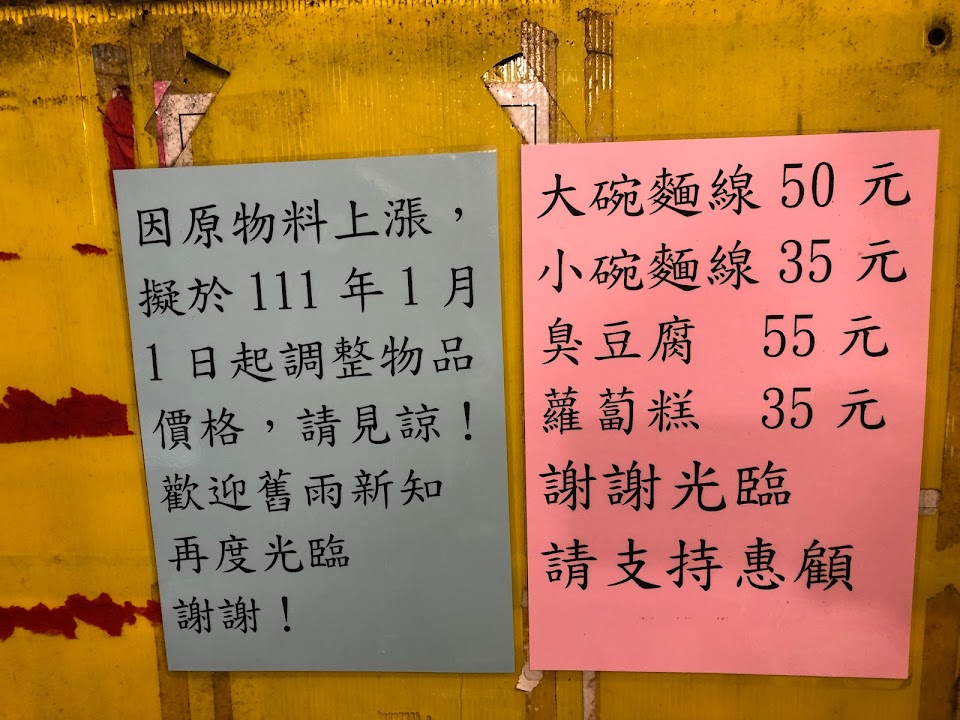 因原物料上漲，
擬於 111 年 1 月
1 日起調整物品
價格，請見諒！
歡迎舊雨新知
再度光臨
謝謝！
大碗麵線 50 元
小碗麵線 35 元
臭豆腐 55 元
蘿蔔糕 35 元
謝謝光臨
請支持惠顧